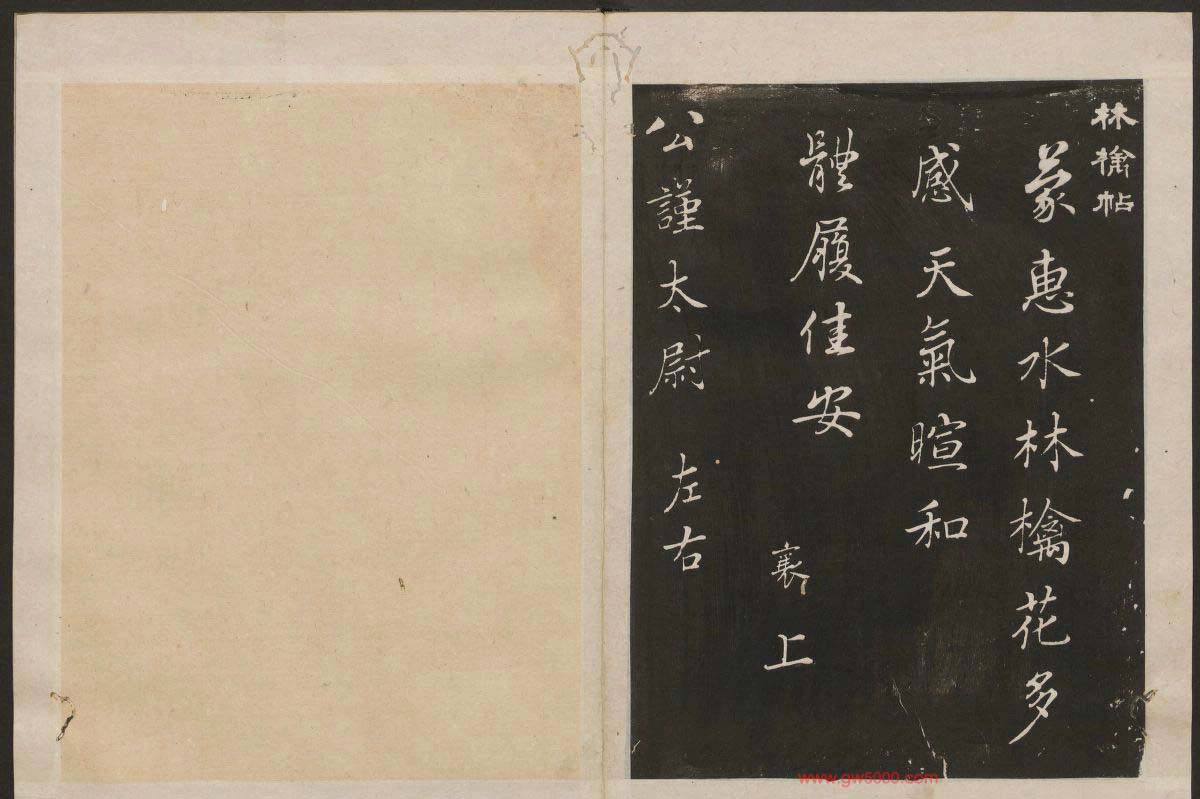 林檎帖
蒙惠水林檎花多
感天氣暄和
體履佳安
襄上
公謹太尉 左右
www.gw5000.com